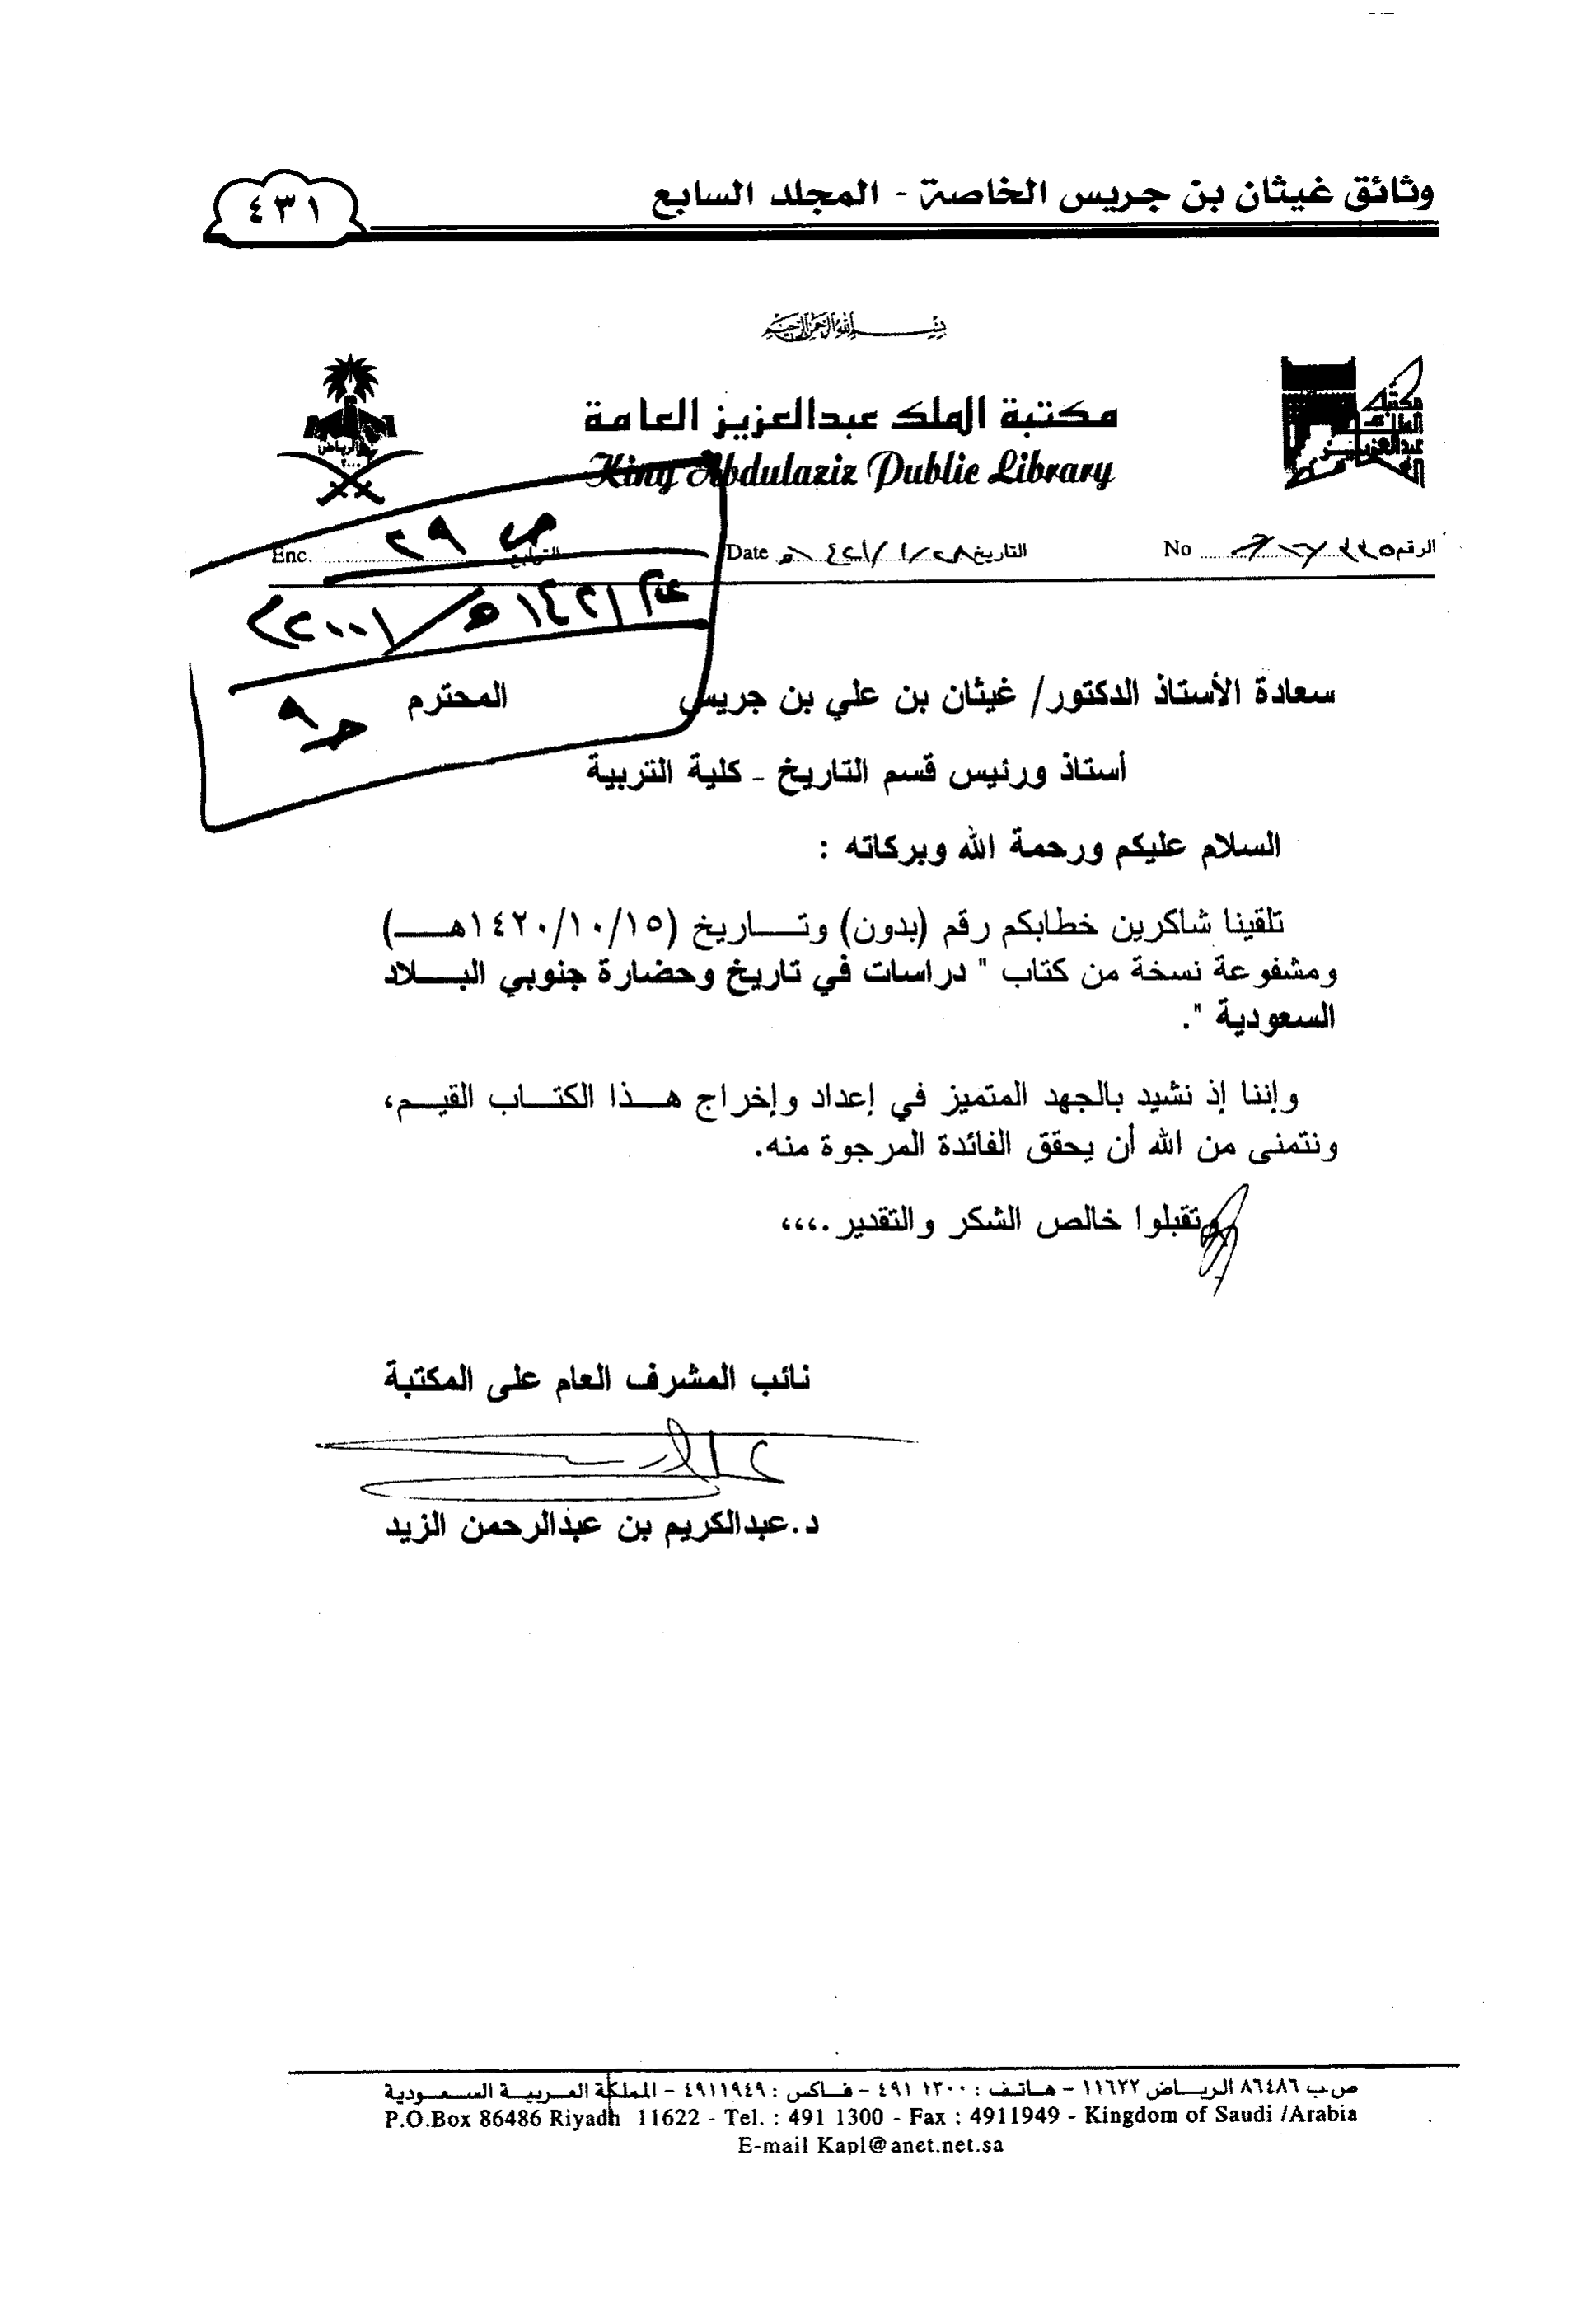 وثائق غيثان بن جريس الخاصة - المجلد السابع
٤٣١
بسم الله الرحمن الرحيم
مكتبة الملك عبدالعزيز العامة
King Abdulaziz Public Library
مكتبة الملك عبدالعزيز
الرياض ٢٠٠٠
الرقم No
التاريخ ١٤٢١/١/٢٨هـ Date
التوابع Enc.
ص ٢٩
١٤٢١هـ/٢٠٠١م
ج٩
سعادة الأستاذ الدكتور/ غيثان بن علي بن جريس المحترم
أستاذ ورئيس قسم التاريخ - كلية التربية
السلام عليكم ورحمة الله وبركاته :
تلقينا شاكرين خطابكم رقم (بدون) وتـــاريخ (١٤٢٠/١٠/١٥هــ)
ومشفوعة نسخة من كتاب " دراسات في تاريخ وحضارة جنوبي البـــلاد
السعودية ".
وإننا إذ نشيد بالجهد المتميز في إعداد وإخراج هـــذا الكتـــاب القيـــم،
ونتمنى من الله أن يحقق الفائدة المرجوة منه.
وتقبلوا خالص الشكر والتقدير.،،،،
نائب المشرف العام على المكتبة
د.عبدالكريم بن عبدالرحمن الزيد
ص.ب ٨٦٤٨٦ الريــاض ١١٦٢٢ - هاتـف : ٤٩١ ١٣٠٠ - فـاكس : ٤٩١١٩٤٩ - المملكة العـربيـة السـعـودية
P.O.Box 86486 Riyadh 11622 - Tel. : 491 1300 - Fax : 4911949 - Kingdom of Saudi /Arabia
E-mail Kapl@anet.net.sa